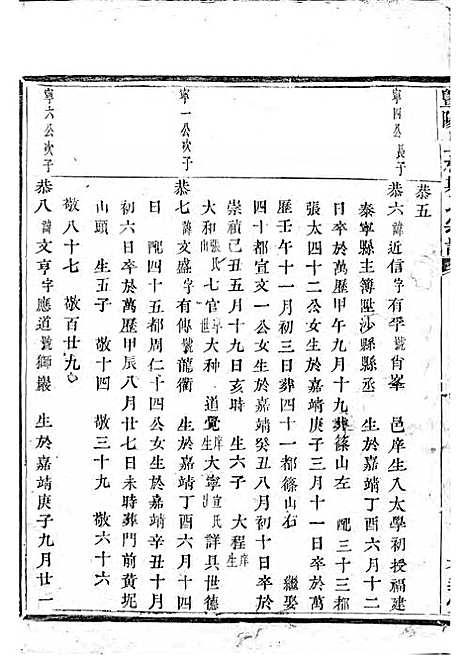 恭五
寧四公長子
恭六諱近信字有孚號肖峯 邑庠生入太學初授福建
泰寧縣主簿陞沙縣縣丞 生於嘉靖丁酉六月十二
日卒於萬歷甲午九月十九葬篠山左 配三十三都
張太四十二公女生於嘉靖庚子三月十一日卒於萬
歷壬午十一月初三日葬四十一都篠山右 繼娶
三十都宣文一公女生於嘉靖癸丑八月初十日卒於
崇禎己丑五月十九日亥時 生六子 大程庠生
大和張氏出 七官庠生 大种 道覺庠生 大寧宣氏出 詳具世德
寧一公次子
恭七諱文盛字有傳號龍衢 生於嘉靖丁酉六月十四
日 配四十五都周仁十四公女生於嘉靖辛丑十月
初六日卒於萬歷甲辰八月廿七日未時葬門前黃坭
山頭 生五子 敬十四 敬三十九 敬六十六
敬八十七 敬百廿九
寧六公次子
恭八諱文亨字應道號獅巖 生於嘉靖庚子九月廿二